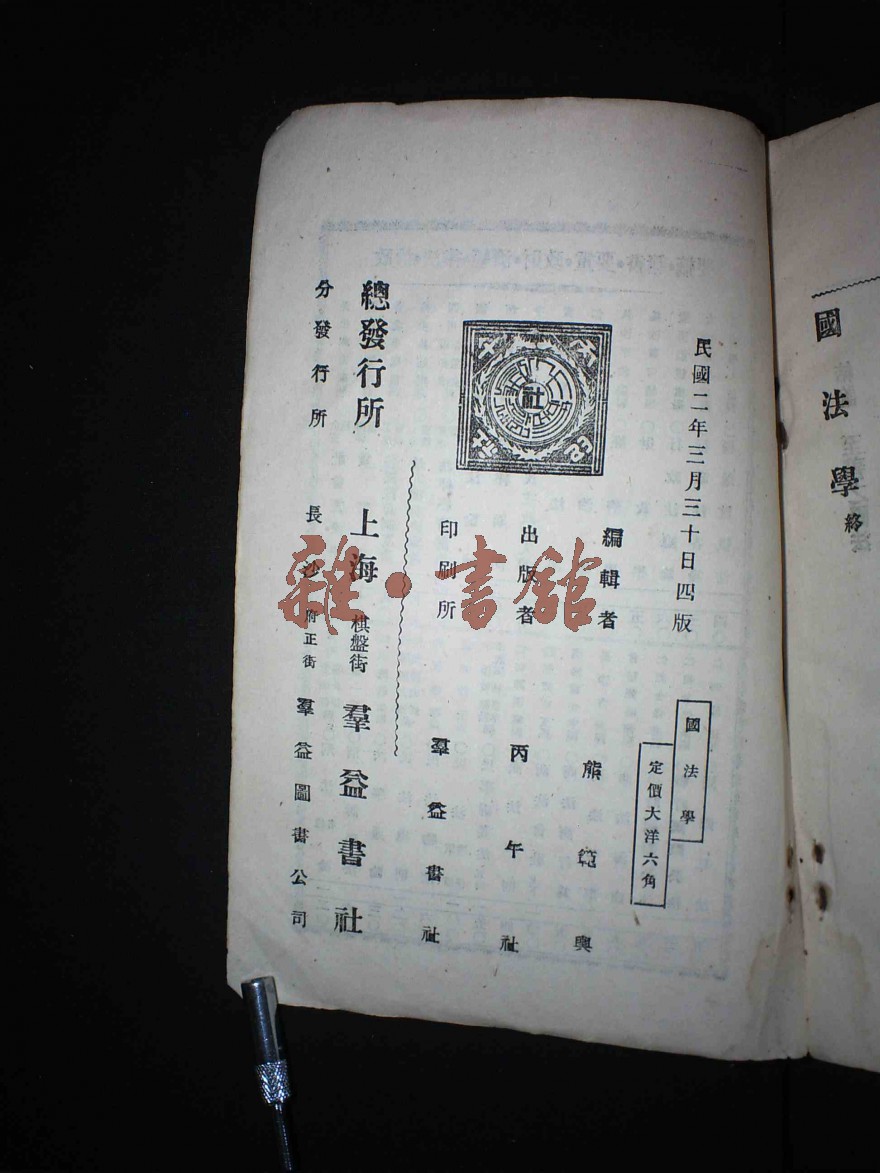 國法學終
民國二年三月三十日四版
國法學
定價大洋六角
編輯者 熊範輿
出版者 丙午社
印刷所 羣益書社
社
總發行所 上海棋盤街 羣益書社
分發行所 長沙府正街 羣益圖書公司
雜·書館